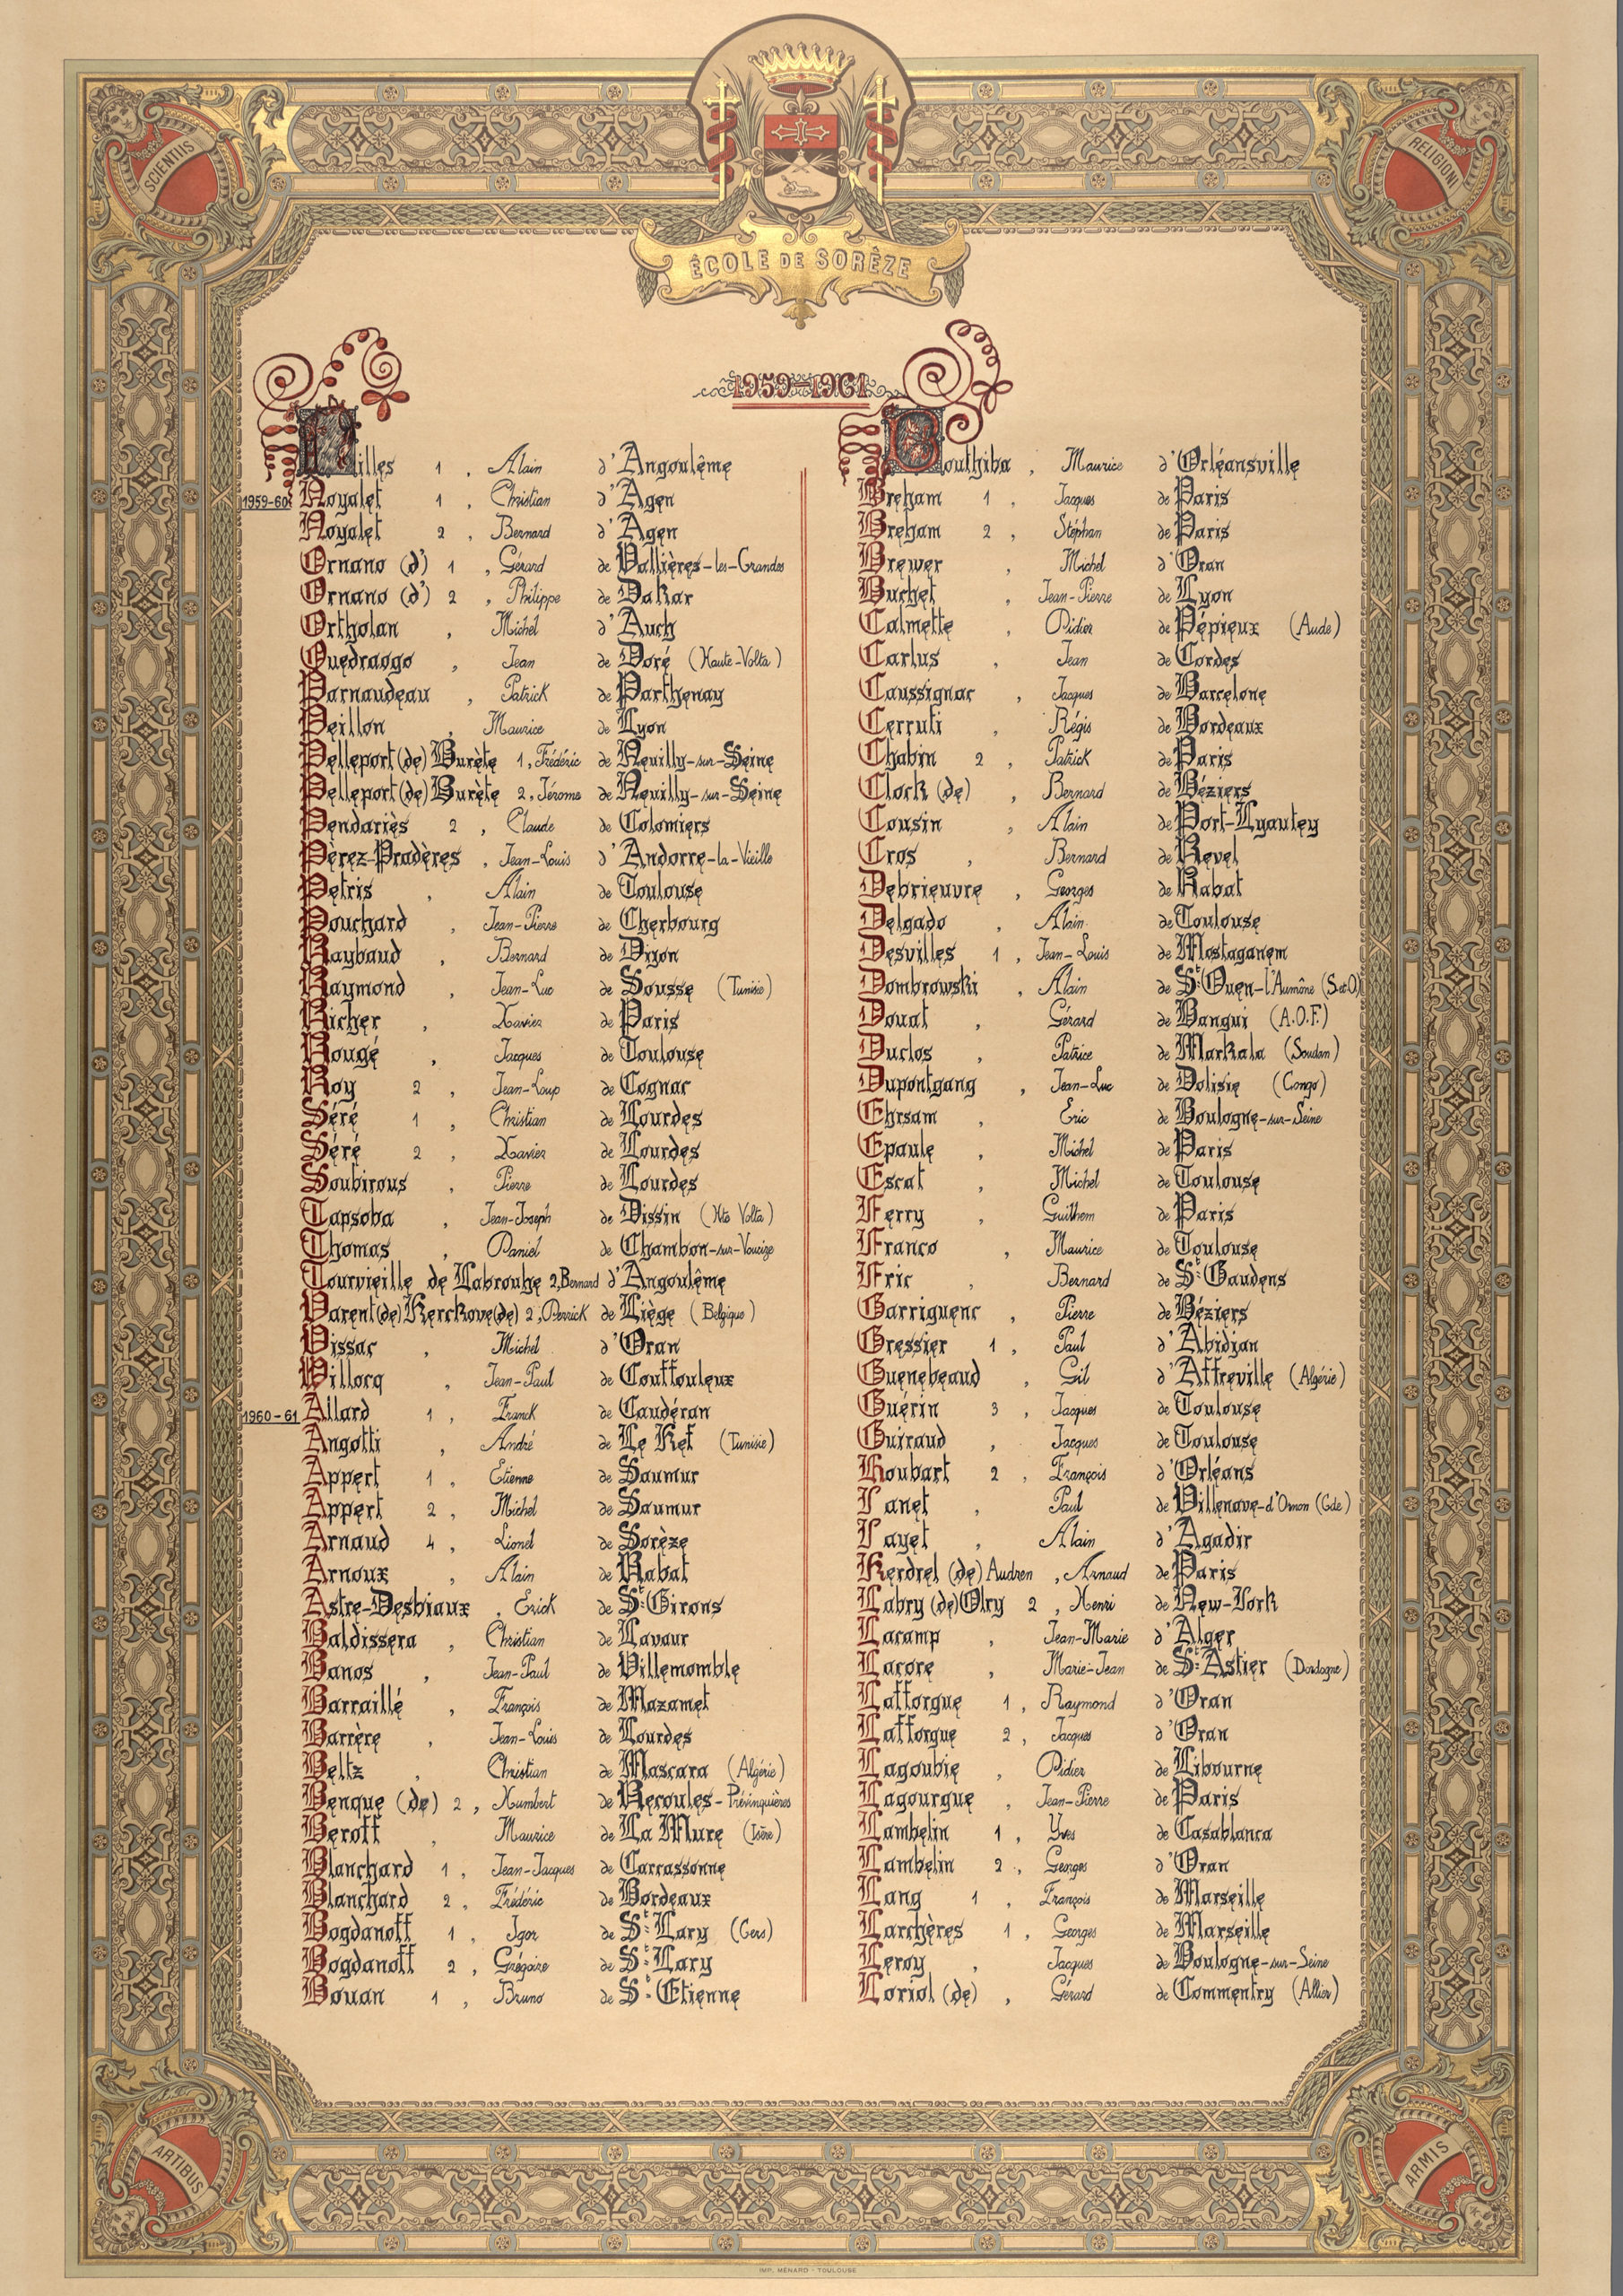 SCIENTIIS
RELIGIONI
ÉCOLE DE SORÈZE
1959-1961
illes 1, Alain d'Angoulême
1959-60 Noyalet 1, Christian d'Agen
Noyalet 2, Bernard d'Agen
Ornano (d') 1, Gérard de Vallières-les-Grandes
Ornano (d') 2, Philippe de Dakar
Ortholan, Michel d'Auch
Ouedraogo, Jean de Doré (Haute-Volta)
Parnaudeau, Patrick de Parthenay
Peillon, Maurice de Lyon
Pelleport (de) Burète 1, Frédéric de Neuilly-sur-Seine
Pelleport (de) Burète 2, Jérome de Neuilly-sur-Seine
Pendariès 2, Claude de Colomiers
Pèrez-Pradères, Jean-Louis d'Andorre-la-Vieille
Petris, Alain de Toulouse
Pouchard, Jean-Pierre de Cherbourg
Raybaud, Bernard de Dijon
Raymond, Jean-Luc de Sousse (Tunisie)
Richer, Xavier de Paris
Rougé, Jacques de Toulouse
Roy 2, Jean-Loup de Cognac
Séré 1, Christian de Lourdes
Séré 2, Xavier de Lourdes
Soubirous, Pierre de Lourdes
Tapsoba, Jean-Joseph de Dissin (Hte Volta)
Thomas, Daniel de Chambon-sur-Voueize
Tourvieille de Labrouhe 2, Bernard d'Angoulême
Varent (de) Kerckove (de) 2, Derrick de Liège (Belgique)
Vissac, Michel d'Oran
Willocq, Jean-Paul de Couffouleux
1960-61 Allard 1, Franck de Caudéran
Angotti, André de Le Kef (Tunisie)
Appert 1, Etienne de Saumur
Appert 2, Michel de Saumur
Arnaud 4, Lionel de Sorèze
Arnoux, Alain de Rabat
Astre-Desbiaux, Erick de St-Girons
Baldissera, Christian de Lavaur
Banos, Jean-Paul de Villemomble
Barraillé, François de Mazamet
Barrère, Jean-Louis de Lourdes
Beltz, Christian de Mascara (Algérie)
Benque (de) 2, Humbert de Recoules-Prévinquières
Beroff, Maurice de La Mure (Isère)
Blanchard 1, Jean-Jacques de Carcassonne
Blanchard 2, Frédéric de Bordeaux
Bogdanoff 1, Igor de St-Lary (Gers)
Bogdanoff 2, Grégoire de St-Lary
Bouan 1, Bruno de St-Etienne
Bouthiba, Maurice d'Orléansville
Breham 1, Jacques de Paris
Breham 2, Stéphan de Paris
Brewer, Michel d'Oran
Buchet, Jean-Pierre de Lyon
Calmette, Didier de Pépieux (Aude)
Carlus, Jean de Cordes
Caussignac, Jacques de Barcelone
Cerruti, Régis de Bordeaux
Chabin 2, Patrick de Paris
Clock (de), Bernard de Béziers
Cousin, Alain de Port-Lyautey
Cros, Bernard de Revel
Debrieuvre, Georges de Rabat
Delgado, Alain de Toulouse
Desvilles 1, Jean-Louis de Mostaganem
Dombrowski, Alain de St-Ouen-l'Aumône (S.et.O)
Douat, Gérard de Bangui (A.O.F.)
Duclos, Patrice de Markala (Soudan)
Dupontgang, Jean-Luc de Dolisie (Congo)
Ehrsam, Eric de Boulogne-sur-Seine
Epaule, Michel de Paris
Escat, Michel de Toulouse
Ferry, Guilhem de Paris
Franco, Maurice de Toulouse
Fric, Bernard de St-Gaudens
Garriguenc, Pierre de Béziers
Gressier 1, Paul d'Abidjan
Guenebeaud, Gil d'Affreville (Algérie)
Guérin 3, Jacques de Toulouse
Guiraud, Jacques de Toulouse
Houbart 2, François d'Orléans
Janet, Paul de Villenave-d'Ornon (Gde)
Jayet, Alain d'Agadir
Kerdrel (de) Audren, Arnaud de Paris
Labry (de) Olry 2, Henri de New-York
Lacamp, Jean-Marie d'Alger
Lacore, Marie-Jean de St-Astier (Dordogne)
Lafforgue 1, Raymond d'Oran
Lafforgue 2, Jacques d'Oran
Lagoubie, Didier de Libourne
Lagourgue, Jean-Pierre de Paris
Lambelin 1, Yves de Casablanca
Lambelin 2, Georges d'Oran
Lang 1, François de Marseille
Larchères 1, Georges de Marseille
Leroy, Jacques de Boulogne-sur-Seine
Loriol (de), Gérard de Commentry (Allier)
ARTIBUS
ARMIS
IMP. MÉNARD - TOULOUSE